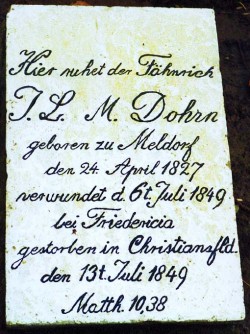 Hier ruhet der Fähnrich
J. L. M. Dohrn
geboren zu Meldorf
den 24. April 1827
verwundet d. 6t. Juli 1849
bei Friedericia
gestorben in Christiansfld.
den 13t. Juli 1849
Matth. 10,38